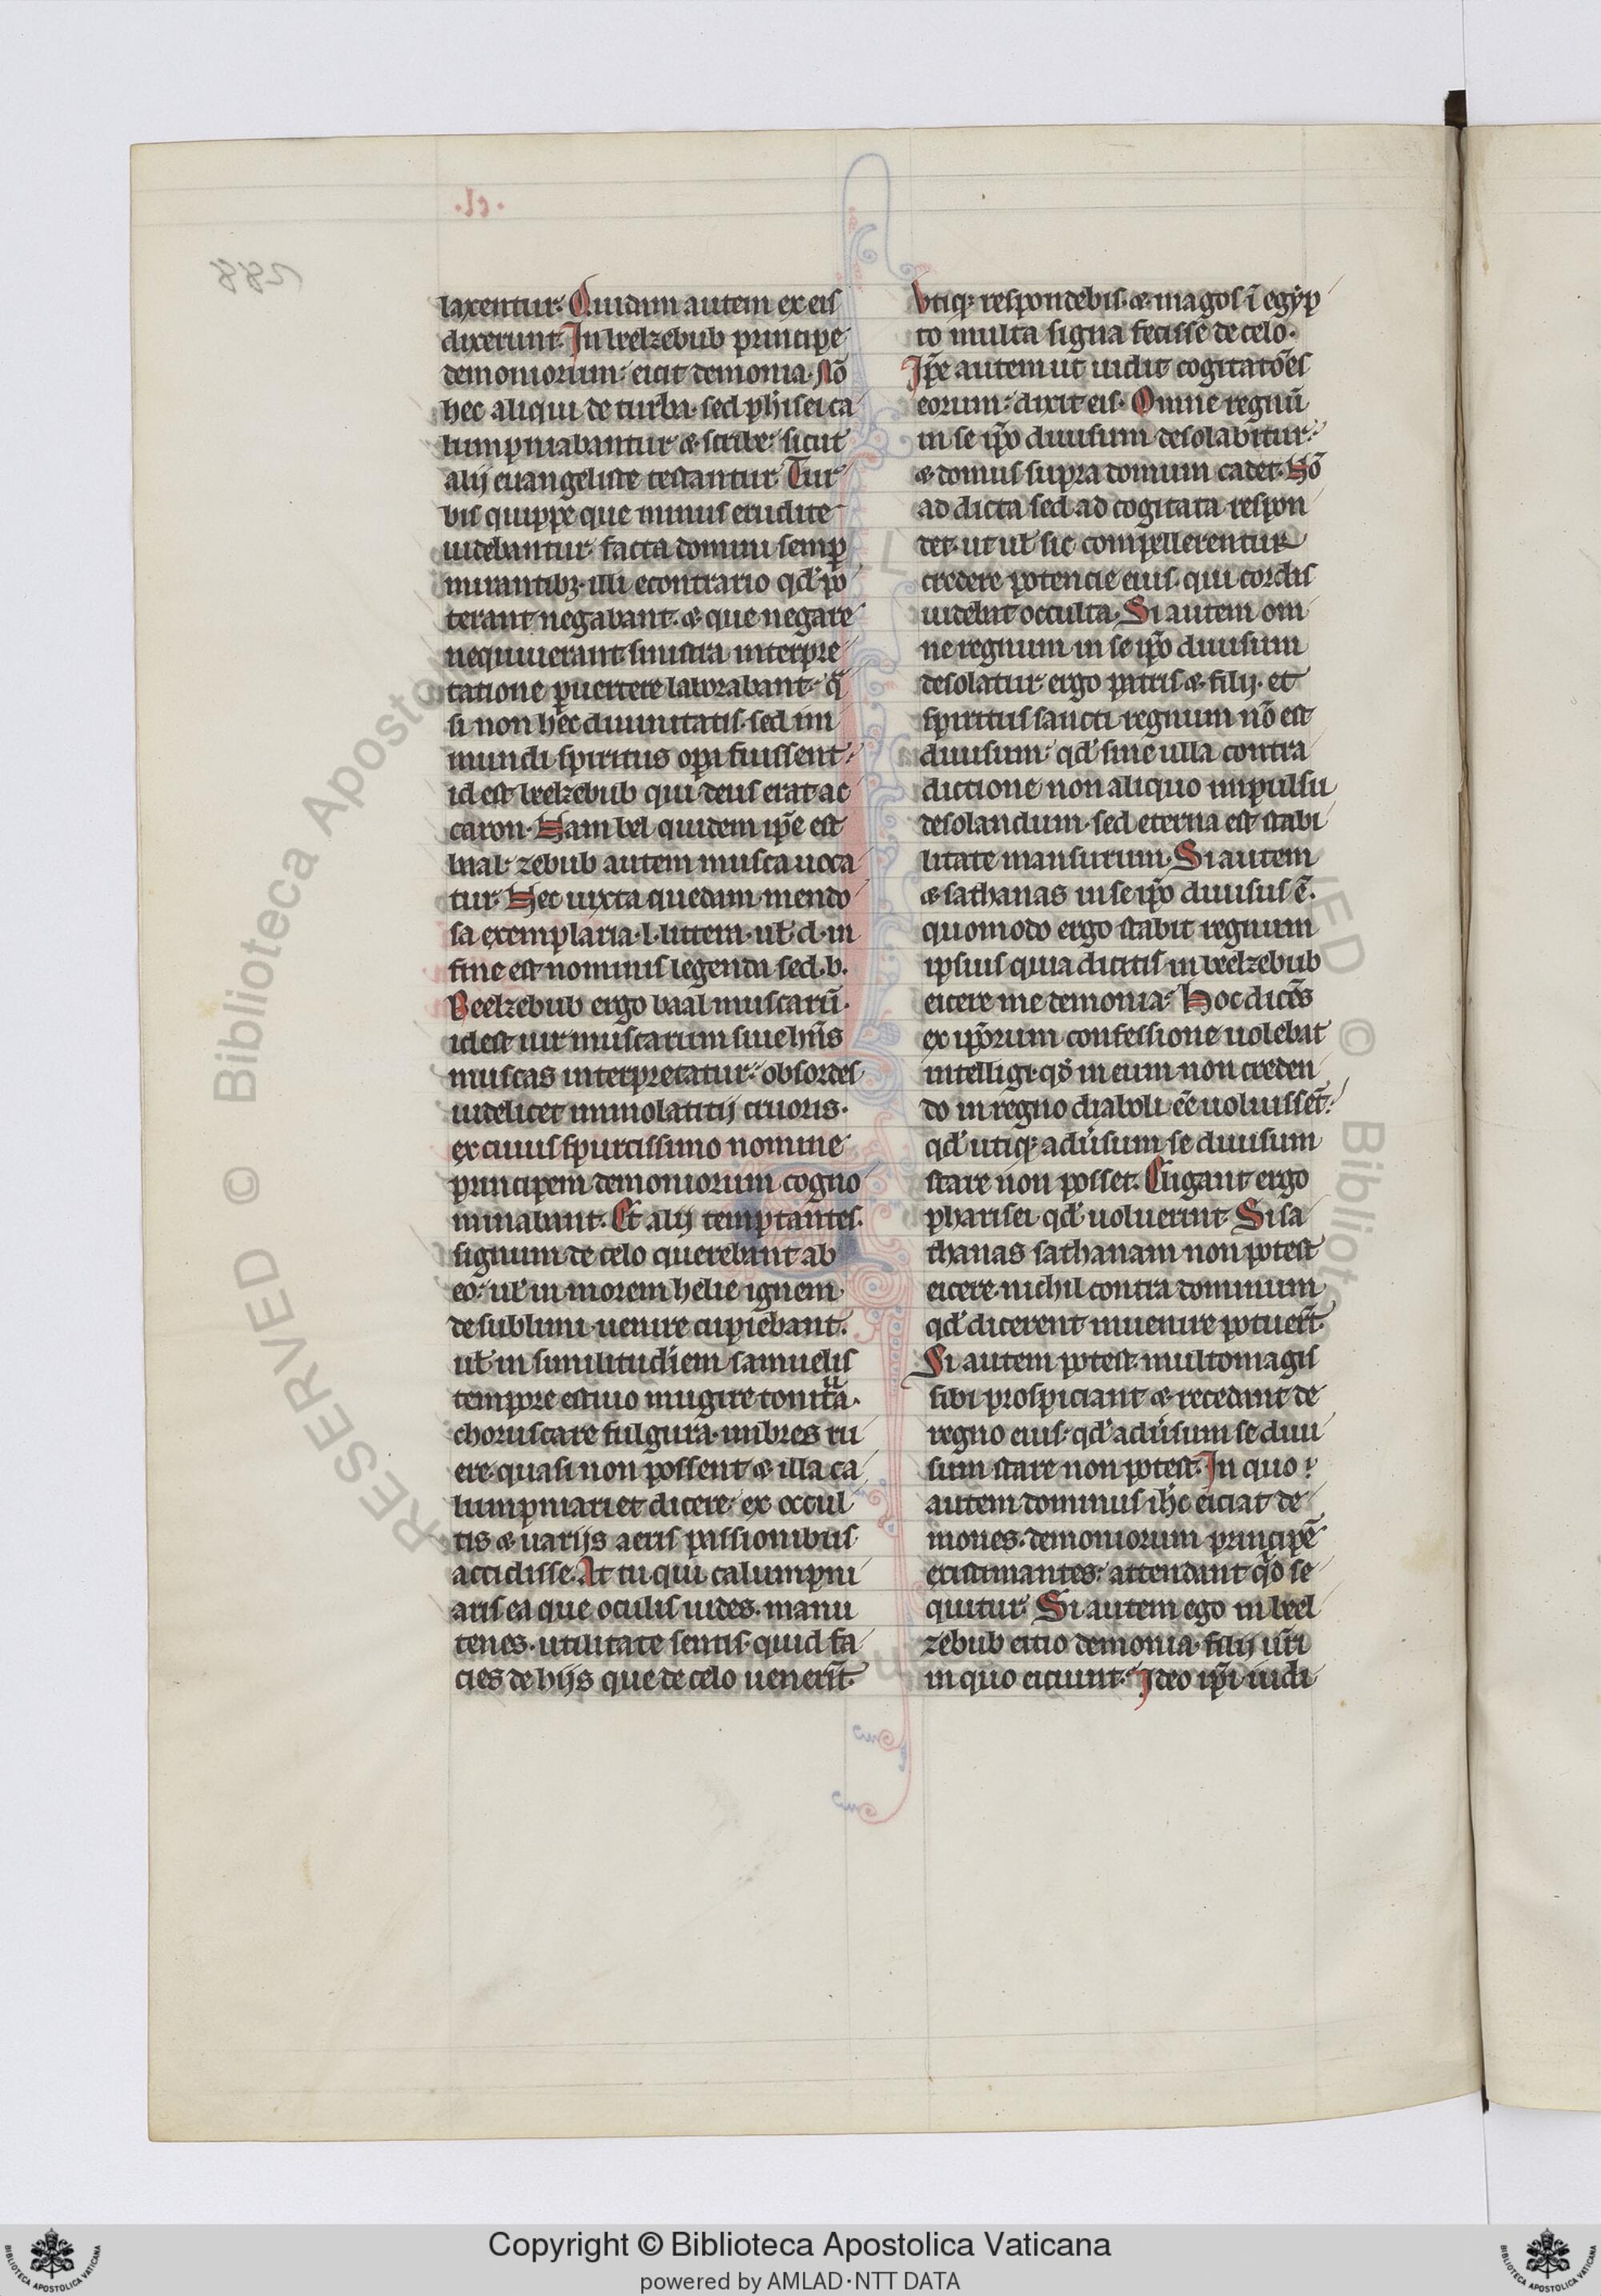 laxentur. Quidam autem ex eis
dixerunt. In beelzebub principe
demoniorum: eicit demonia. Nō
hec aliqui de turba. sed phisei ca
lumpniabantur & scribe: sicut
alij euangeliste testantur. Tur
bis quippe que minus erudite
uidebantur. facta domini semp
mirantibꝫ. illi econtrario qd' po
terant negabant. & que negare
nequiuerant sinistra interpre
tatione puertere laborabant. q̄
si non hec diuinitatis. sed im
mundi spiritus opa fuissent.
id est beelzebub qui deus erat ac
caron. Nam bel quidem ip̄e est
baal. zebub autem musca uoca
tur. Nec iuxta quedam mendo
sa exemplaria .l. littera. ul' .d. in
fine est nominis legenda sed .b.
Beelzebub ergo baal muscarū.
id est uir muscarum siue hn̄s
muscas interpretatur. ob sordes
uidelicet immolatitij cruoris.
ex cuius spurcissimo nomine
principem demoniorum cogno
minabant. Et alij temptantes.
signum de celo querebant ab
eo: ul' in morem helie ignem
de sublimi uenire cupiebant.
ul' in similitudiem samuelis
tempore estiuo mugire tonit̄a.
choruscare fulgura. imbres ru
ere. quasi non possent & illa ca
lumpniari et dicere. ex occul
tis & uarijs aeris passionibus
accidisse. At tu qui calumpni
aris ea que oculis uides. manu
tenes. utilitate sentis. quid fa
cies de hijs que de celo uenerīt.
Vtiqꝫ respondebis. & magos ī egyp
to multa signa fecisse de celo.
Ip̄e autem ut uidit cogitatōes
eorum: dixit eis. Omne regnū
in se ip̄o diuisum desolabitur:
& domus supra domum cadet. Nō
ad dicta sed ad cogitata respon
det. ut ul' sic compellerentur
credere potencie eius. qui cordis
uidebat occulta. Si autem om
ne regnum in se ip̄o diuisum
desolatur ergo patris & filij. et
spiritus sancti regnum nō est
diuisum: qd' sine ulla contra
dictione non aliquo impulsu
desolandum. sed eterna est stabi
litate mansurum. Si autem
& sathanas in se ip̄o diuisus ē.
quomodo ergo stabit regnum
ipsius quia dicitis in beelzebub
eicere me demonia. Hoc dicēs
ex ip̄orum confessione uolebat
intelligi. qd' in eum non creden
do in regno diaboli eē uoluissēt.
qd' utiqꝫ adūsum se diuisum
stare non posset. Eligant ergo
pharisei qd' uoluerint. Si sa
thanas sathanam non potest
eicere. nichil contra dominum
qd' dicerent inuenire potuerīt.
Si autem potest. multomagis
sibi prospiciant & recedant de
regno eius. qd' adūsum se diui
sum stare non potest. In quo
autem dominus ih̄c eiciat de
mones. demoniorum principē
existimantes: attendant qd' se
quitur. Si autem ego in beel
zebub eitio demonia. filij ur̄i
in quo eiciunt. Ideo ip̄i iudi
© Biblioteca Apostolica
RESERVED
© Bibliotec
Copyright © Biblioteca Apostolica Vaticana
powered by AMLAD·NTT DATA